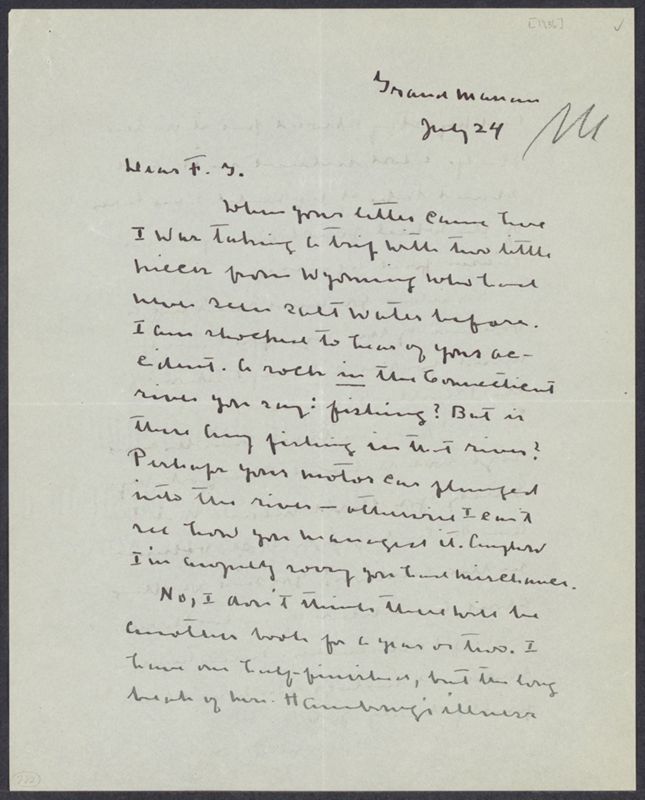 [1936]
Grand Manan
July 24
Dear F. G.
When your letter came here
I was taking a trip with two little
nieces from Wyoming who had
never seen salt water before.
I am shocked to hear of your ac-
cident. A rock in the Connecticut
river you say: fishing? But is
there any fishing in that river?
Perhaps your motor car plunged
into the river — otherwise I can't
see how you managed it. Anyhow
I'm awfully sorry you had mischance.
No, I don't think there will be
another book for a year or two. I
have one half-finished, but the long
break of Mrs. Hambourg's illness